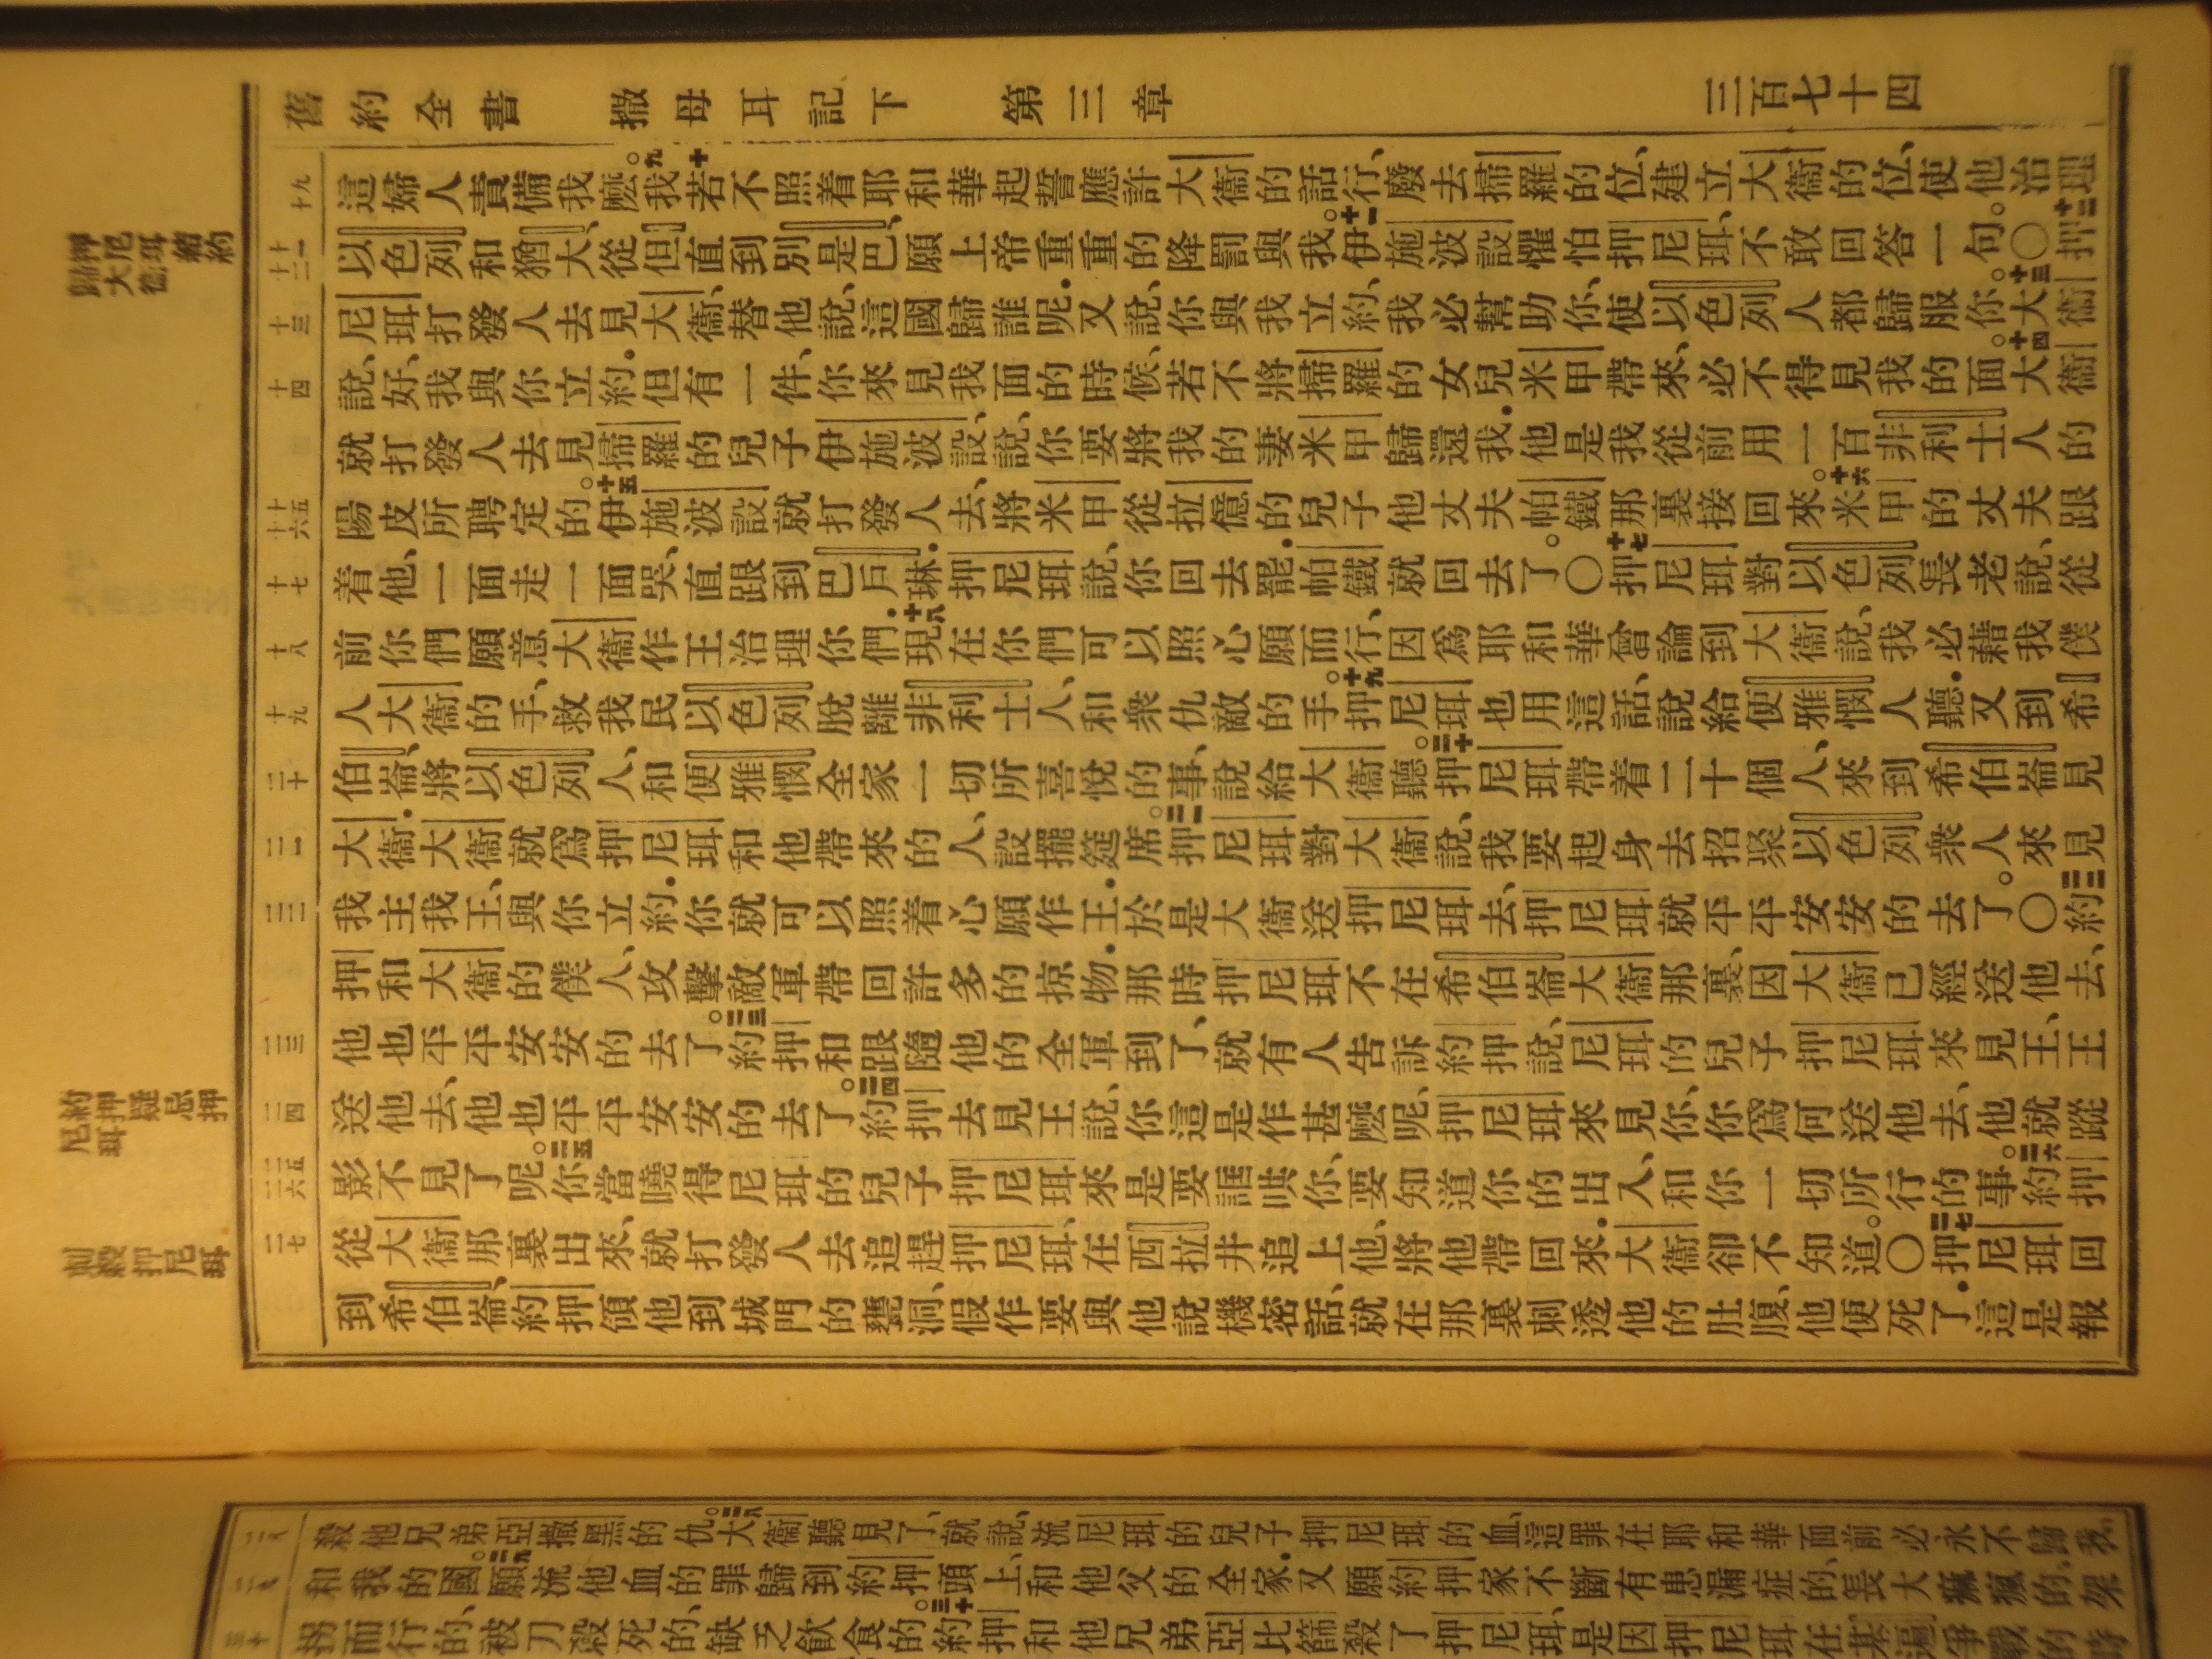 舊約全書 撒母耳記下 第三章 三百七十四
這婦人責備我麼。九我十若不照着耶和華起誓應許大衞的話行、廢去掃羅的位、建立大衞的位、使他治理
以色列和猶大、從但直到別是巴、願上帝重重的降罰與我。十一伊施波設懼怕押尼珥、不敢回答一句。〇十二押
尼珥打發人去見大衞、替他說、這國歸誰呢．又說、你與我立約、我必幫助你、使以色列人都歸服你。十三大衞
說、好、我與你立約．但有一件、你來見我面的時候、若不將掃羅的女兒米甲帶來、必不得見我的面。十四大衞
就打發人去見掃羅的兒子伊施波設、說、你要將我的妻米甲歸還我．他是我從前用一百非利士人的
陽皮所聘定的。十五伊施波設就打發人去、將米甲從拉億的兒子他丈夫帕鐵那裏接回來。十六米甲的丈夫跟
着他、一面走一面哭、直跟到巴戶琳．押尼珥說、你回去罷．帕鐵就回去了。〇十七押尼珥對以色列長老說、從
前你們願意大衞作王治理你們．十八現在你們可以照心願而行、因爲耶和華曾論到大衞說、我必藉我僕
人大衞的手、救我民以色列脫離非利士人、和衆仇敵的手。十九押尼珥也用這話、說給便雅憫人聽．又到希
伯崙、將以色列人、和便雅憫全家一切所喜悅的事、說給大衞聽。二十押尼珥帶着二十個人、來到希伯崙見
大衞．大衞就爲押尼珥和他帶來的人、設擺筵席。二一押尼珥對大衞說、我要起身去招聚以色列衆人來見
我主我王、與你立約．你就可以照着心願作王．於是大衞送押尼珥去、押尼珥就平平安安的去了。〇二二約
押和大衞的僕人、攻擊敵軍帶回許多的掠物．那時押尼珥不在希伯崙大衞那裏、因大衞已經送他去、
他也平平安安的去了。二三約押和跟隨他的全軍到了、就有人告訴約押說、尼珥的兒子押尼珥來見王、王
送他去、他也平平安安的去了。二四約押去見王說、你這是作甚麼呢、押尼珥來見你、你爲何送他去、他就蹤
影不見了呢。二五你當曉得尼珥的兒子押尼珥來、是要誆哄你、要知道你的出入、和你一切所行的事。二六約押
從大衞那裏出來、就打發人去追趕押尼珥、在西拉井追上他、將他帶回來．大衞卻不知道。〇二七押尼珥回
到希伯崙、約押領他到城門的甕洞、假作要與他說機密話、就在那裏刺透他的肚腹、他便死了．這是報
約押疑忌押尼珥
刺殺押尼珥
殺他兄弟亞撒黑的仇。二八大衞聽見了、就說、流尼珥的兒子押尼珥的血、這罪在耶和華面前必永不歸我、
和我的國。二九願流他血的罪歸到約押頭上、和他父的全家．又願約押家不斷有患漏症的、長大痲瘋的、架
拐而行的、被刀殺死的、缺乏飲食的。三十約押和他兄弟亞比篩殺了押尼珥、是因押尼珥在基遍爭戰的時